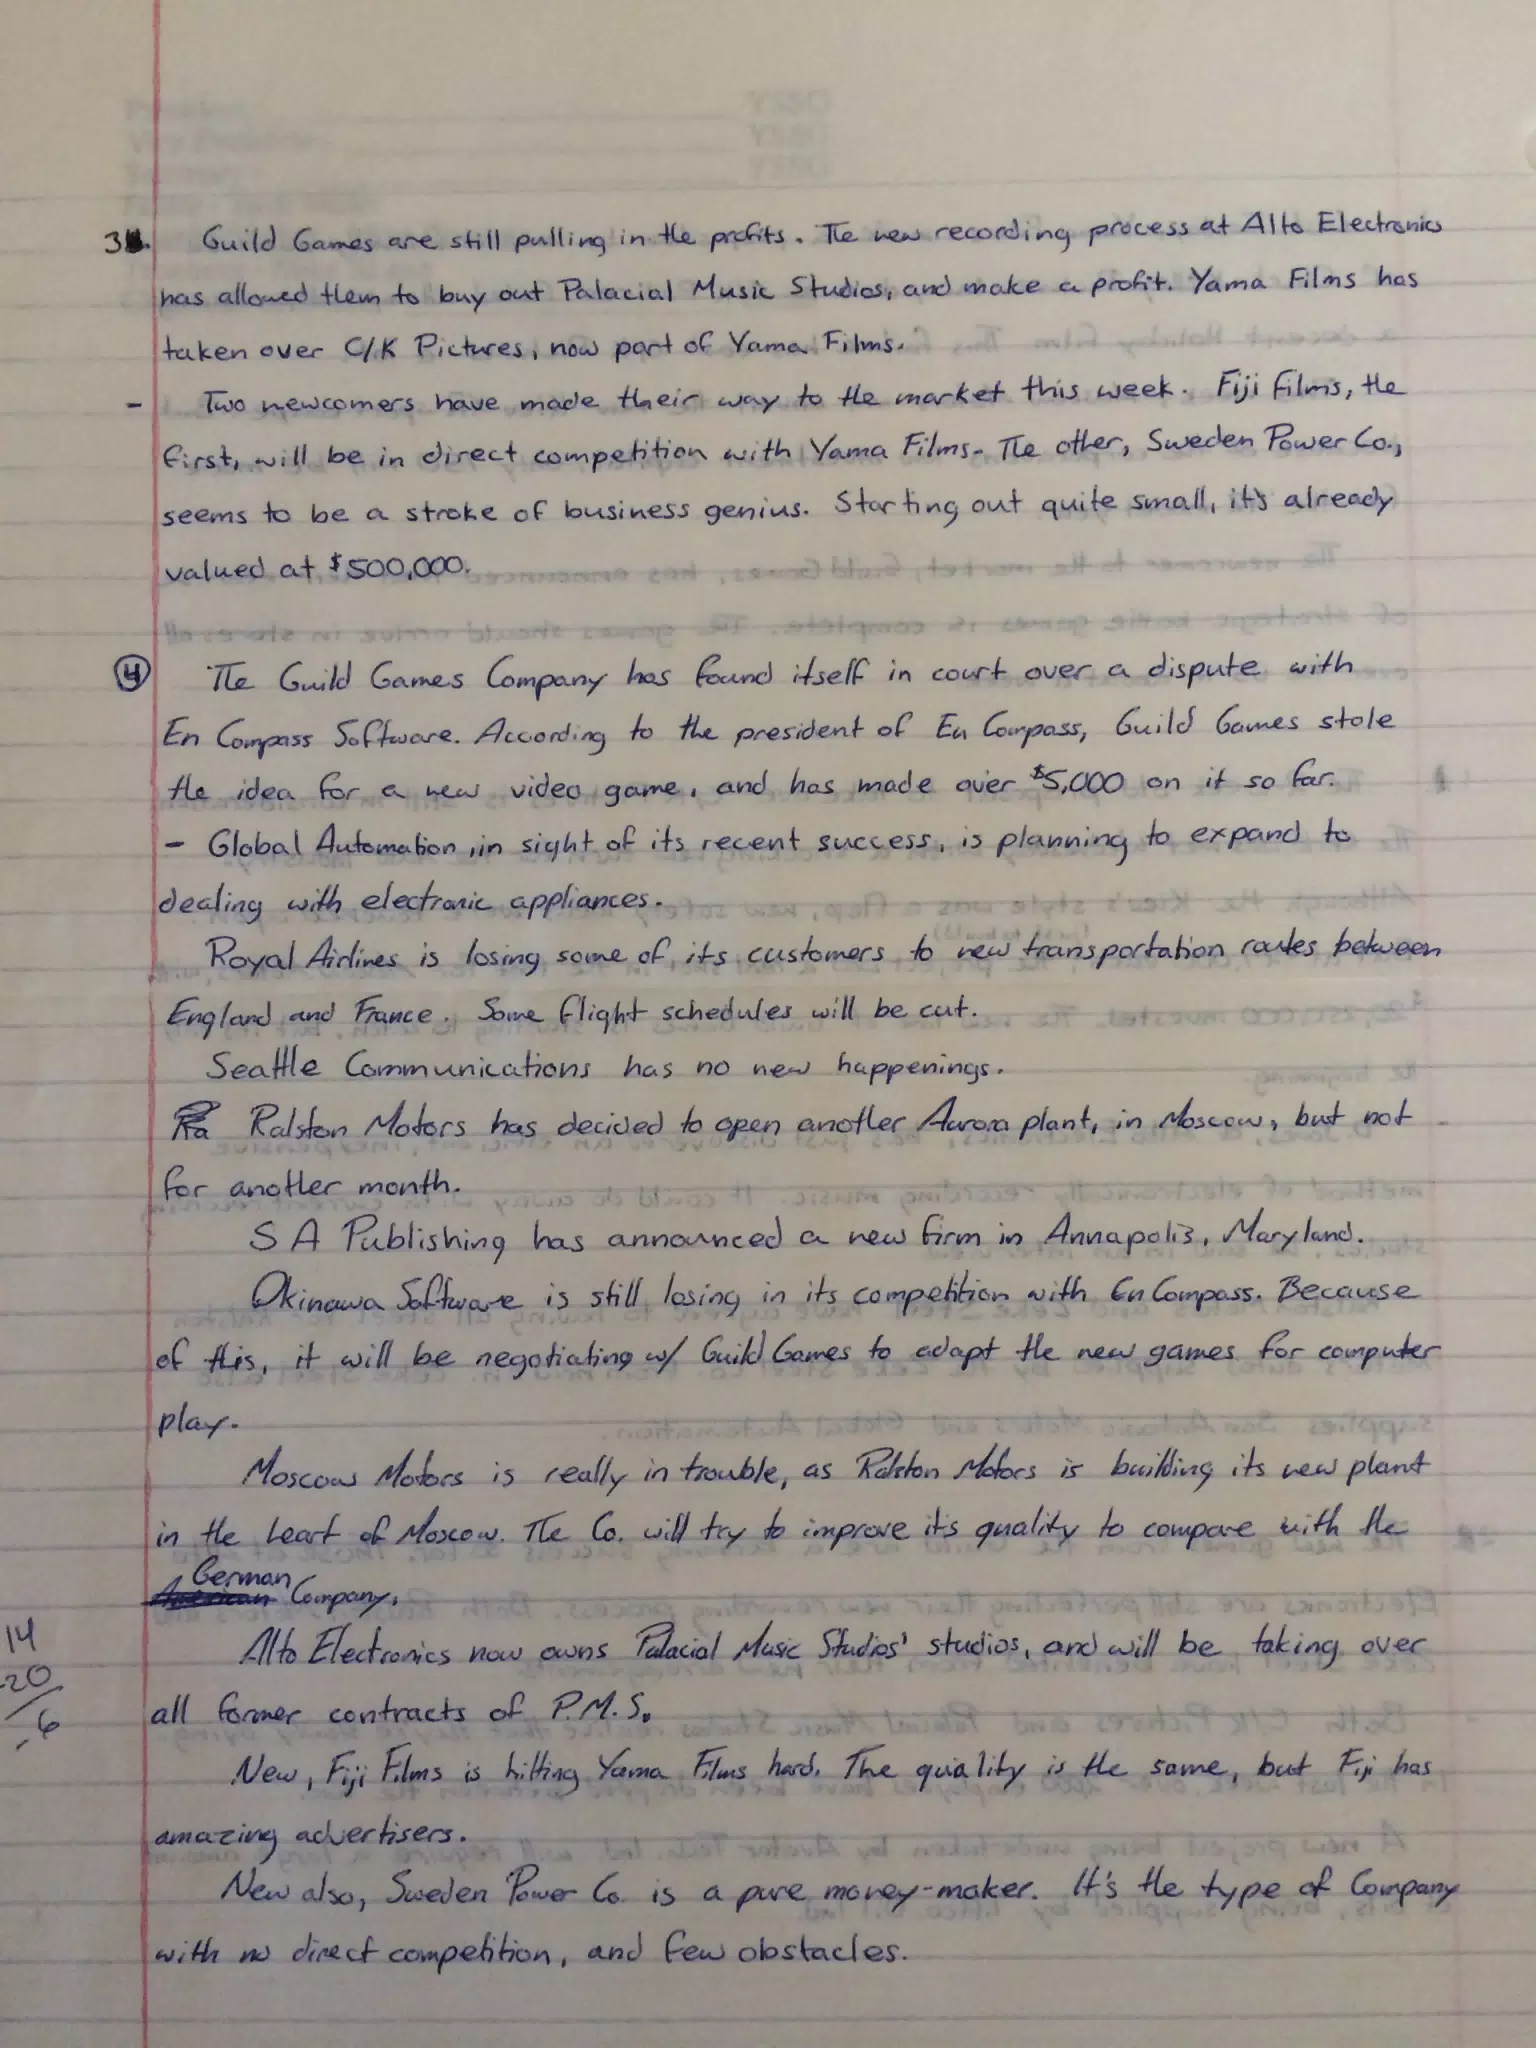 3. Guild Games are still pulling in the profits. The new recording process at Alto Electronics
has allowed them to buy out Palacial Music Studios, and make a profit. Yama Films has
taken over C/K Pictures, now part of Yama Films.
- Two newcomers have made their way to the market this week. Fiji films, the
first, will be in direct competition with Yama Films. The other, Sweden Power Co.,
seems to be a stroke of business genius. Starting out quite small, it's already
valued at $500,000.
4 The Guild Games Company has found itself in court over a dispute with
En Compass Software. According to the president of En Compass, Guild Games stole
the idea for a new video game, and has made over $5,000 on it so far.
- Global Automation, in sight of its recent success, is planning to expand to
dealing with electronic appliances.
Royal Airlines is losing some of its customers to new transportation routes between
England and France. Some flight schedules will be cut.
Seattle Communications has no new happenings.
Ra Ralston Motors has decided to open another Aurora plant, in Moscow, but not
for another month.
S A Publishing has announced a new firm in Annapolis, Maryland.
Okinawa Software is still losing in its competition with En Compass. Because
of this, it will be negotiating w/ Guild Games to adapt the new games for computer
play.
Moscow Motors is really in trouble, as Ralston Motors is building its new plant
in the heart of Moscow. The Co. will try to improve its quality to compare with the
German
American Company.
Alto Electronics now owns Palacial Music Studios' studios, and will be taking over
all former contracts of P.M.S.
New, Fiji Films is hitting Yama Films hard. The quality is the same, but Fiji has
amazing advertisers.
New also, Sweden Power Co. is a pure money-maker. It's the type of Company
with no direct competition, and few obstacles.
14
-20
-6